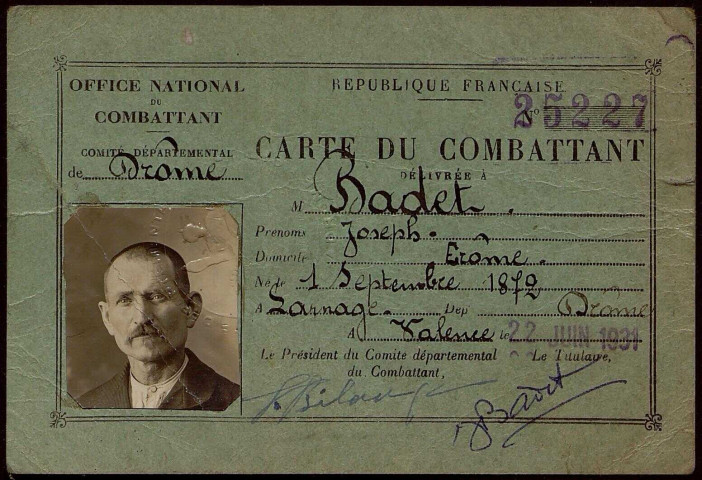 OFFICE NATIONAL
DU
COMBATTANT
COMITÉ DÉPARTEMENTAL
de Drôme
REPUBLIQUE FRANÇAISE
No 25227
CARTE DU COMBATTANT
DÉLIVRÉE À
M Badet.
Prénoms Joseph.
Domicile Erôme.
Né le 1 Septembre 1872
A Larnage. Dep Drôme
A Valence le 22 JUIN 1931
Le Président du Comité départemental
du Combattant,
Le Titulaire,
Badet